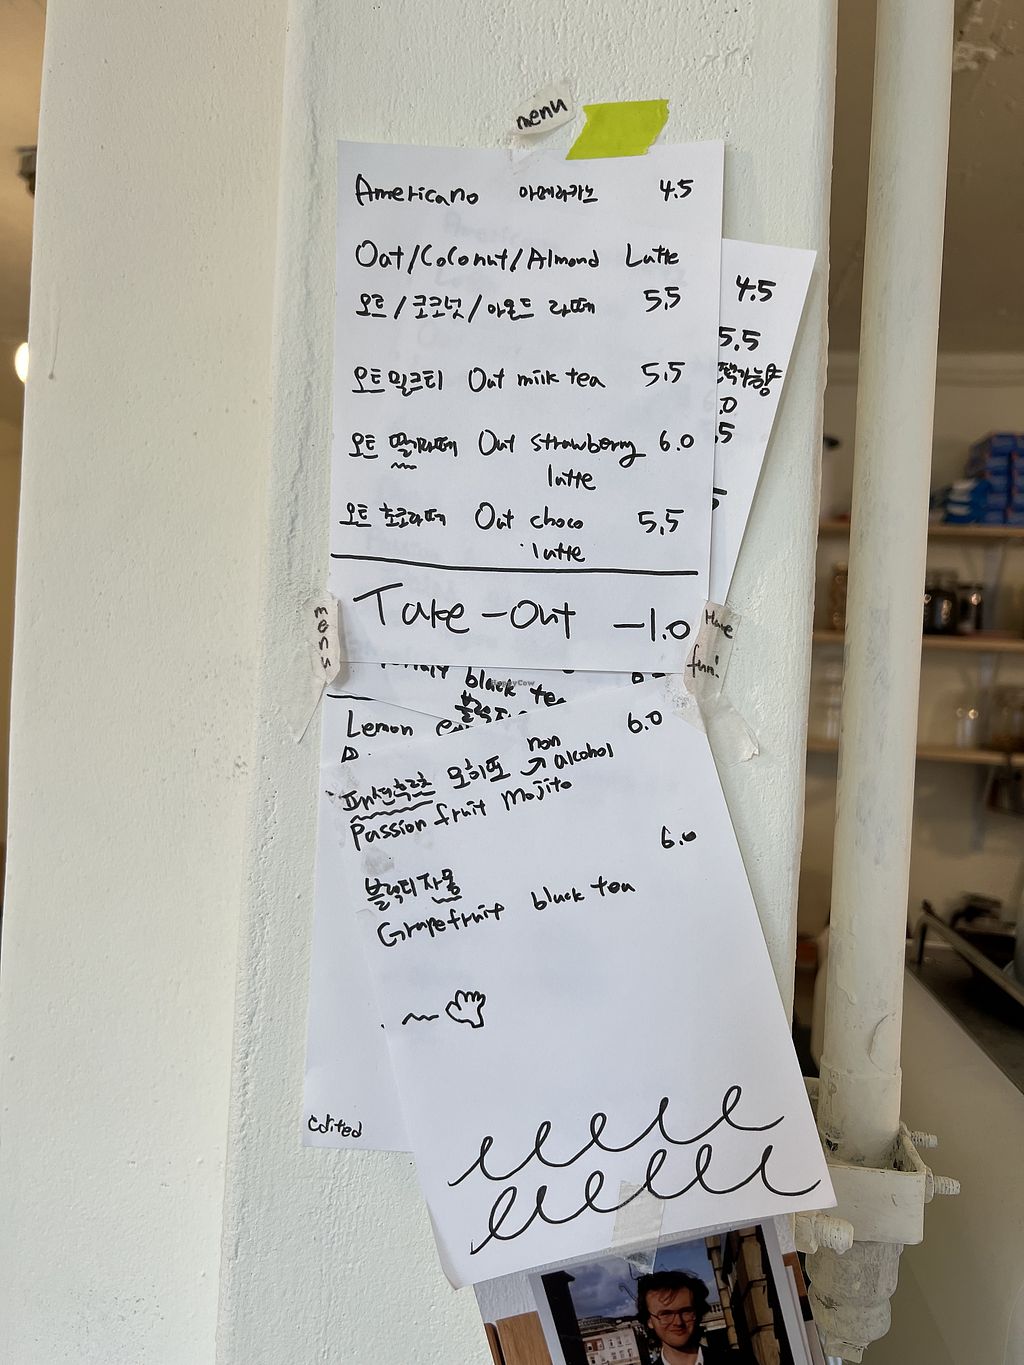 menu
Americano 아메리카노 4.5
Oat/Coconut/Almond Latte
오트/코코넛/아몬드 라떼 5.5
오트밀크티 Oat milk tea 5.5
오트 딸기라떼 Oat strawberry 6.0
latte
오트 초코라떼 Oat choco 5.5
latte
Take-Out -1.0
menu
Have
fun!
4.5
5.5
black tea
Lemon
6.0
패션후르츠 모히또 non
alcohol
Passion fruit Mojito
6.0
블랙티자몽
Grapefruit black tea
Edited
HappyCow